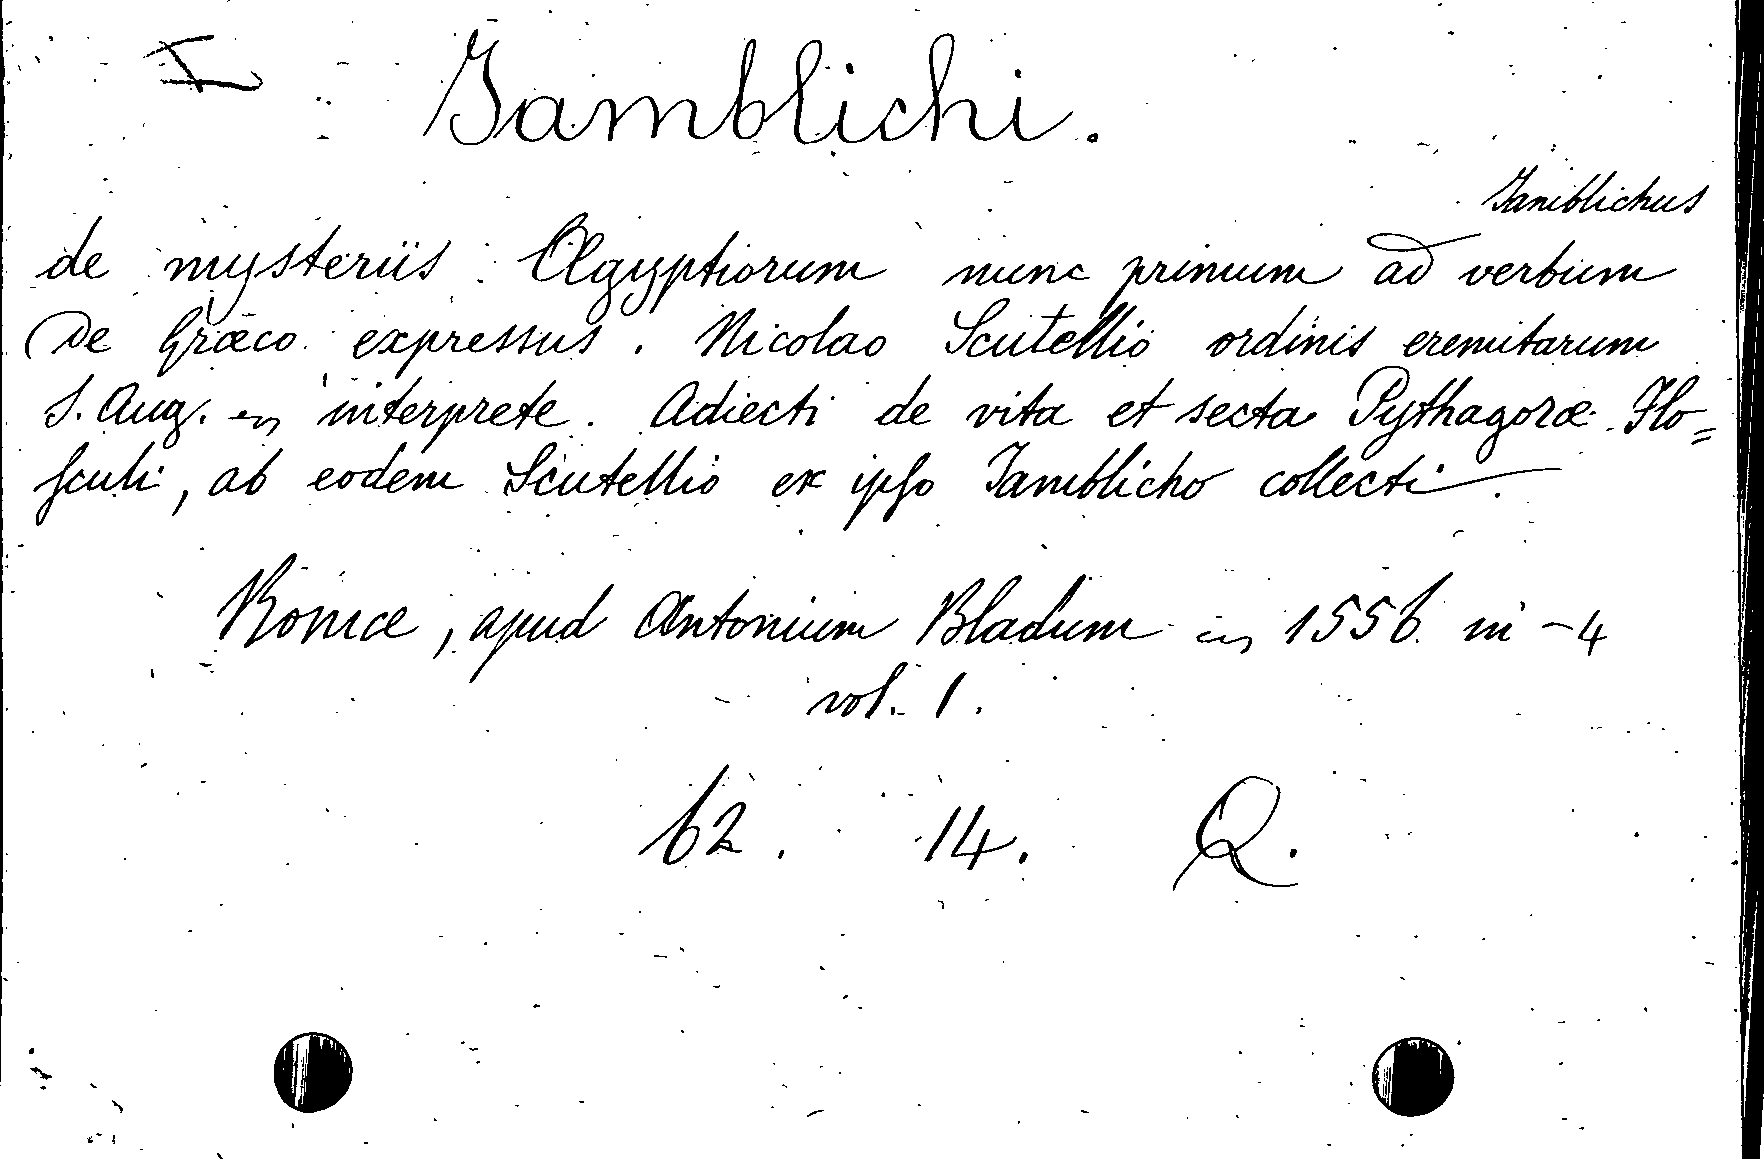 I
Jamblichi.
Jamblichus
de mysteriis Ægyptiorum nunc primum ad verbum
de Græco expressus. Nicolao Scutellio ordinis eremitarum
S. Aug. interprete. Adiecti de vita et secta Pythagoræ Flo=
sculi, ab eodem Scutellio ex ipso Jamblicho collecti.
Romæ, apud Antonium Bladum 1556 in-4
vol. 1.
62. 14. Q.